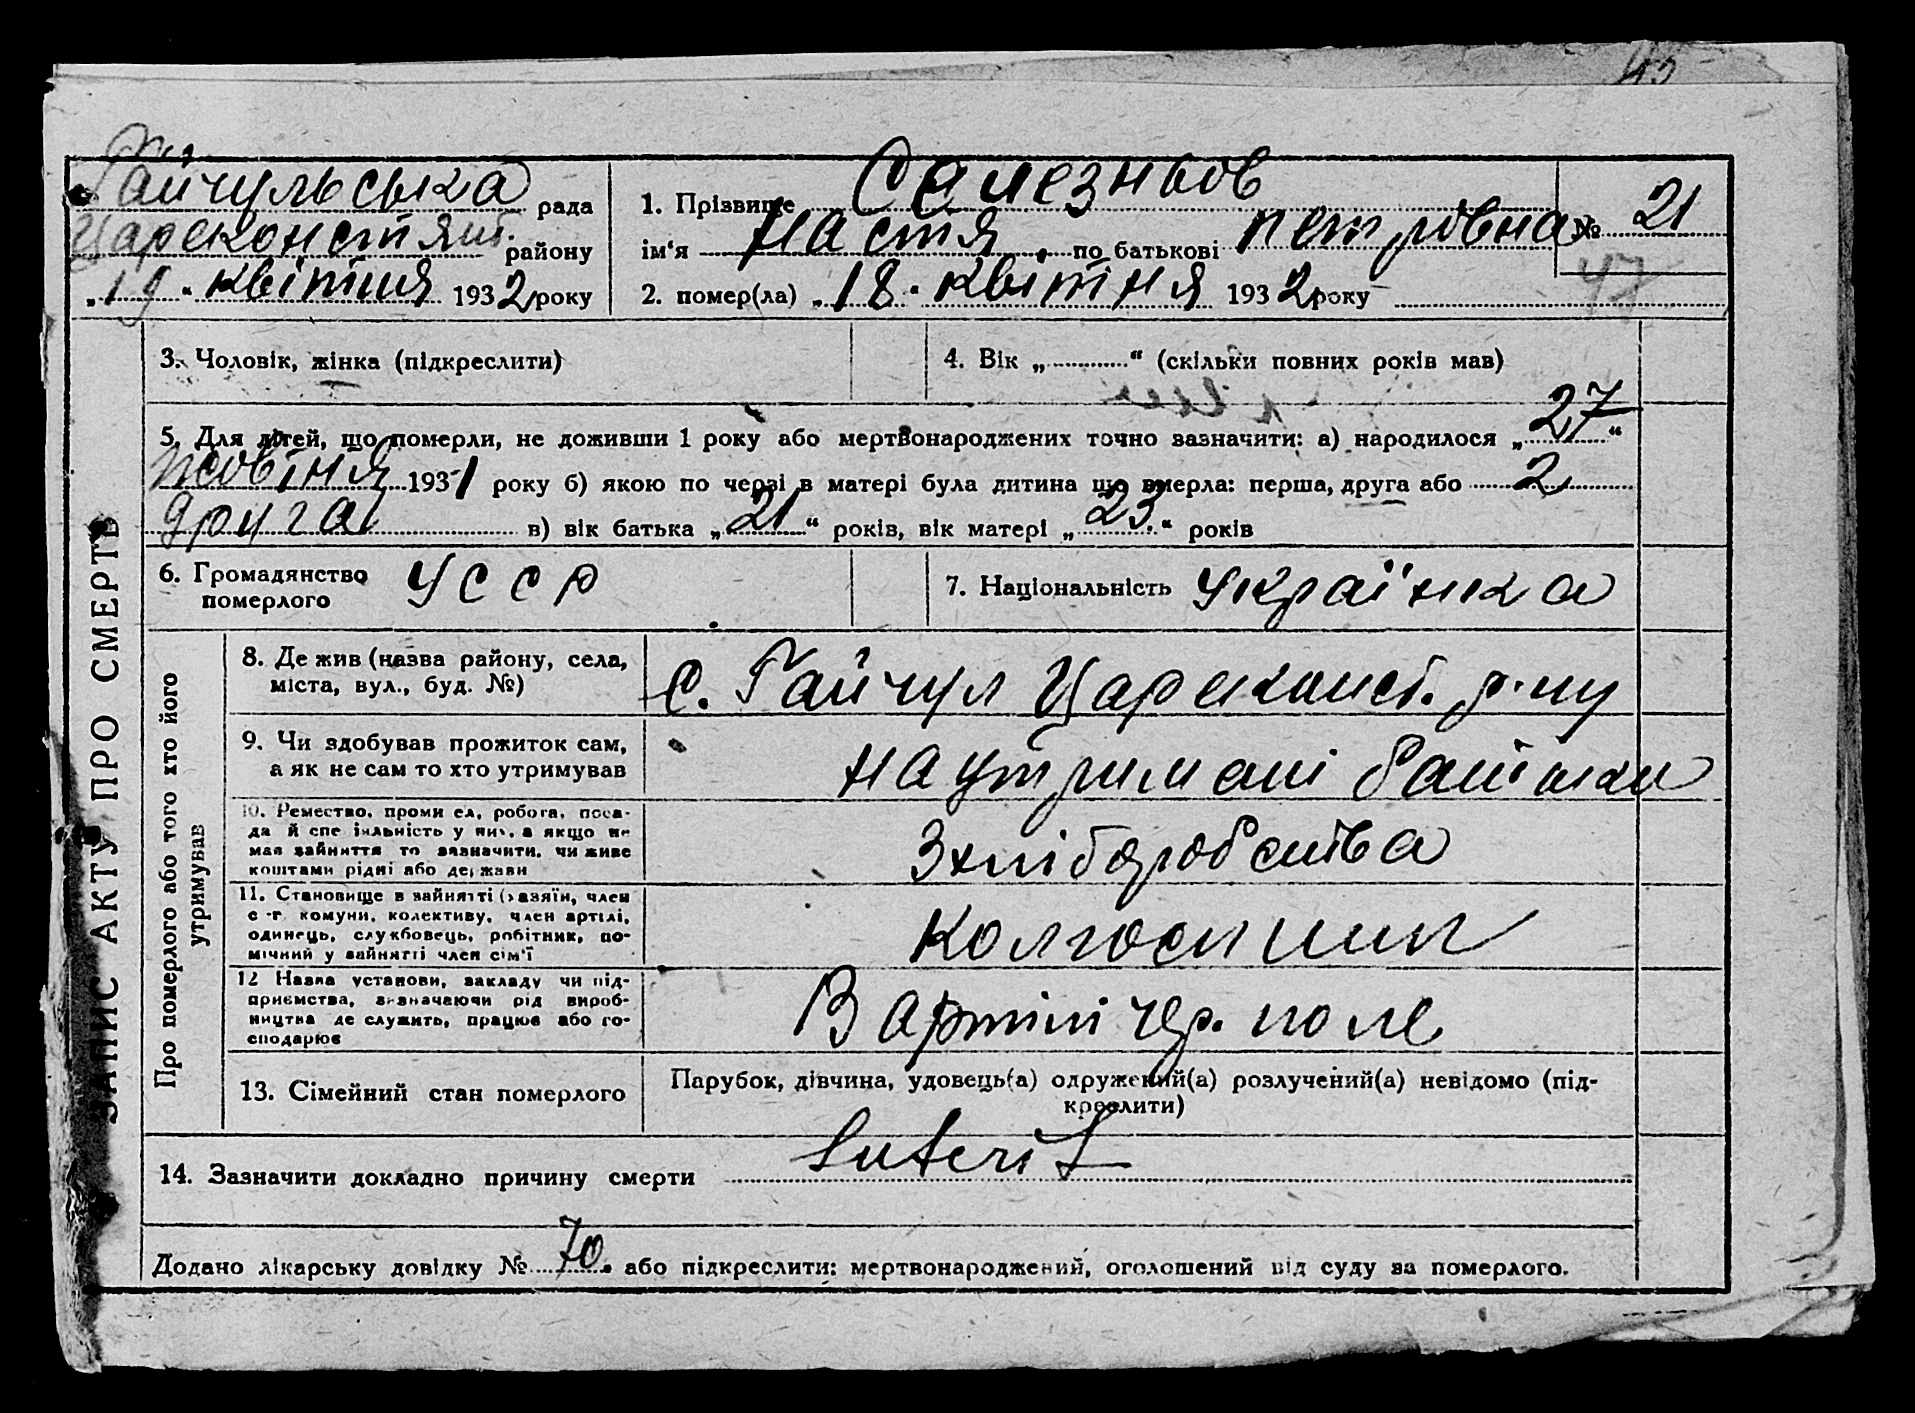 45
Гайчульська рада
Цареконстян. району
„19“ квітня 1932 року
1. Прізвище Селезньов
ім‘я Настя по батькові Петрівна
2. помер(ла) „18“ квітня 1932 року
№ 21
47
ЗАПИС АКТУ ПРО СМЕРТЬ
3. Чоловік, жінка (підкреслити)
4. Вік „ “ (скільки повних років мав)
5. Для дітей, що померли, не доживши 1 року або мертвонароджених точно зазначити: а) народилося „27“
жовтня 1931 року б) якою по черзі в матері була дитина що вмерла: перша, друга або 2
друга в) вік батька „21“ років, вік матері „23“ років
6. Громадянство померлого УССР
7. Національність українка
Про померлого або того хто його утримував
8. Де жив (назва району, села,
міста, вул., буд. №)
с. Гайчул Цареконст. р-ну
9. Чи здобував прожиток сам,
а як не сам то хто утримував
на утримані батька
10. Ремество, промисел, робота, поса-
да й спеціяльність у них, а якщо не
мав зайняття то зазначити, чи живе
коштами рідні або держави
З хліборобства
11. Становище в зайнятті (хазяїн, член
с.-г. комуни, колективу, член артілі,
одинець, службовець, робітник, по-
мічний у зайнятті член сім‘ї
Колгоспник
12 Назва установи, закладу чи під-
приємства, зазначаючи рід вироб-
ництва де служить, працює або го-
сподарює
В артілі чер. поле
13. Сімейний стан померлого
Парубок, дівчина, удовець(а) одружений(а) розлучений(а) невідомо (під-
креслити)
14. Зазначити докладно причину смерти Enterit
Додано лікарську довідку № 70. або підкреслити: мертвонароджений, оголошений від суду за померлого.